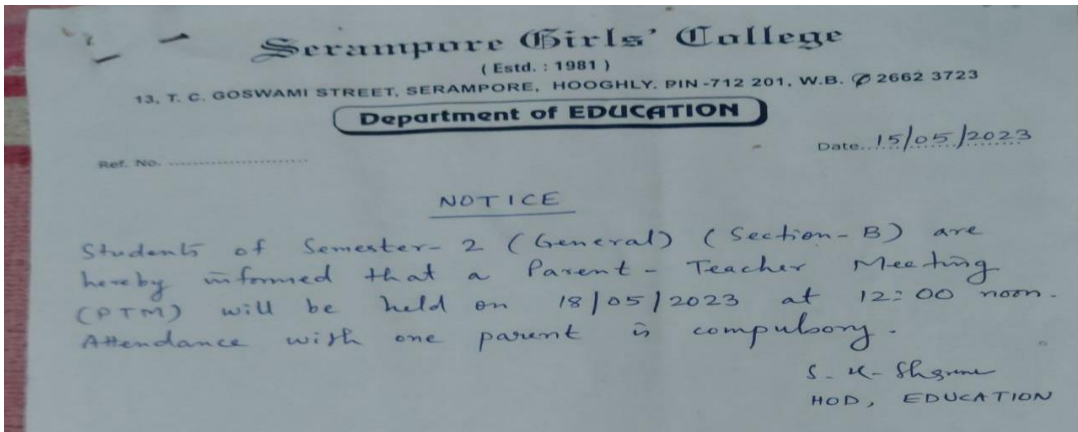 Serampore Girls' College
( Estd. : 1981 )
13, T. C. GOSWAMI STREET, SERAMPORE, HOOGHLY. PIN -712 201, W.B. ✆ 2662 3723
Department of EDUCATION
Ref. No. ........................ Date..15/05/2023
NOTICE
Students of Semester- 2 (General) (Section - B) are
hereby informed that a Parent - Teacher Meeting
(PTM) will be held on 18/05/2023 at 12:00 noon.
Attendance with one parent is compulsory.
S. K.
HOD, EDUCATION